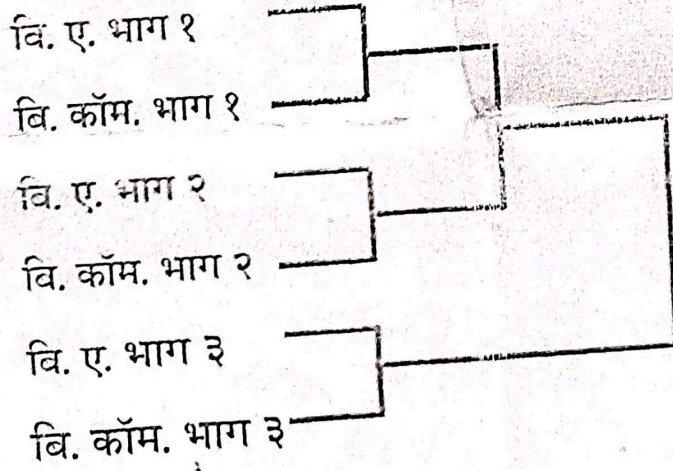 बि. ए. भाग १
बि. कॉम. भाग १
बि. ए. भाग २
बि. कॉम. भाग २
बि. ए. भाग ३
बि. कॉम. भाग ३